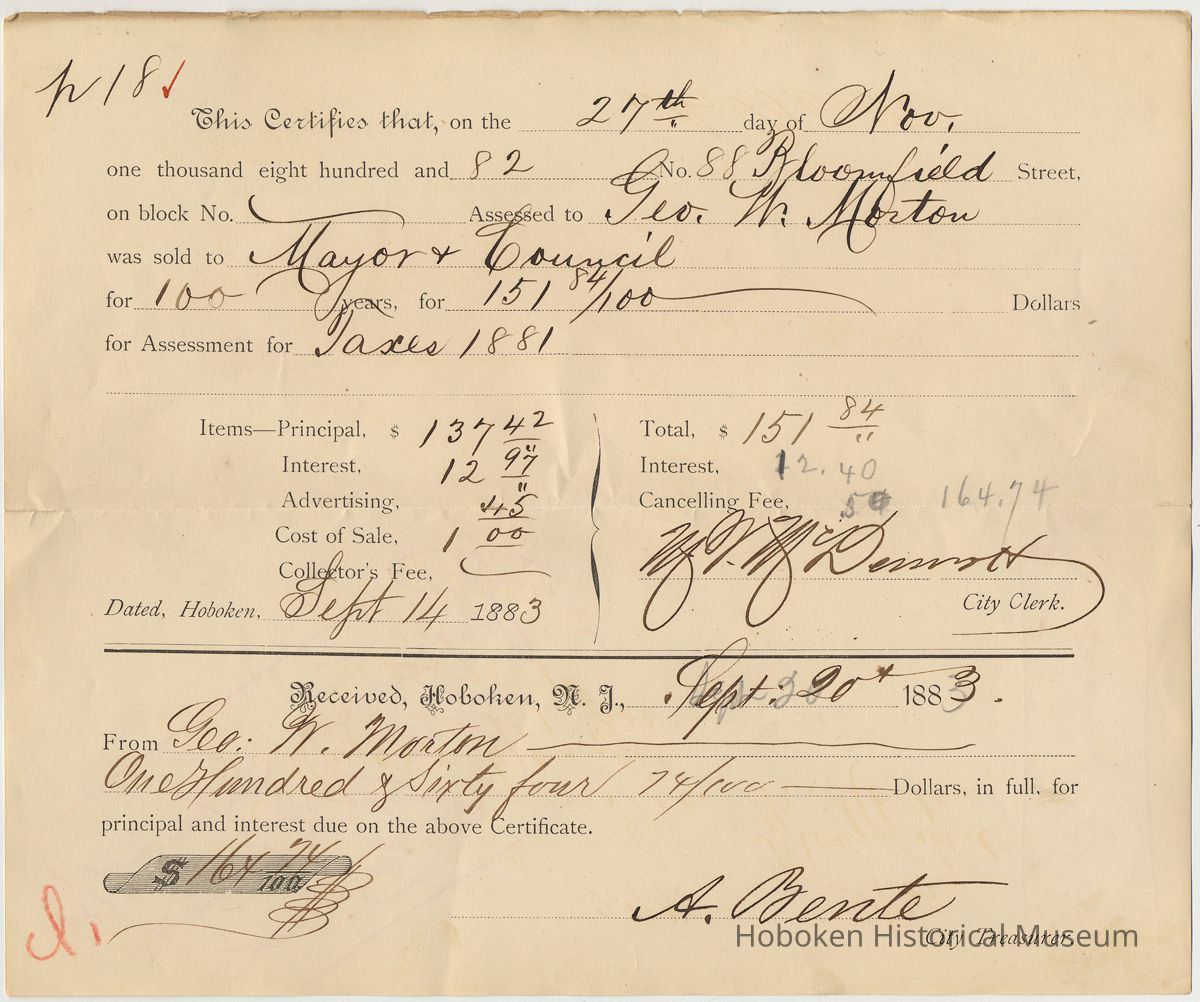 p 18 ✓
This Certifies that, on the 27th day of Nov.
one thousand eight hundred and 82 No. 88 Bloomfield Street,
on block No. Assessed to Geo. W. Morton
was sold to Mayor & Council
for 100 years, for 151 84/100 Dollars
for Assessment for Taxes 1881
Items—Principal, $ 137 42
Interest, 12 97
Advertising, 45
Cost of Sale, 1 00
Collector's Fee,
Dated, Hoboken, Sept 14 1883
Total, $ 151 84
Interest, 12.40
Cancelling Fee, .50 164.74
McDermott
City Clerk.
Received, Hoboken, N. J., Sept. 20 1883.
From Geo. W. Morton
One Hundred & Sixty four 74/100 Dollars, in full, for
principal and interest due on the above Certificate.
$ 164 74/100
A. Bente
City Treasurer.
Hoboken Historical Museum